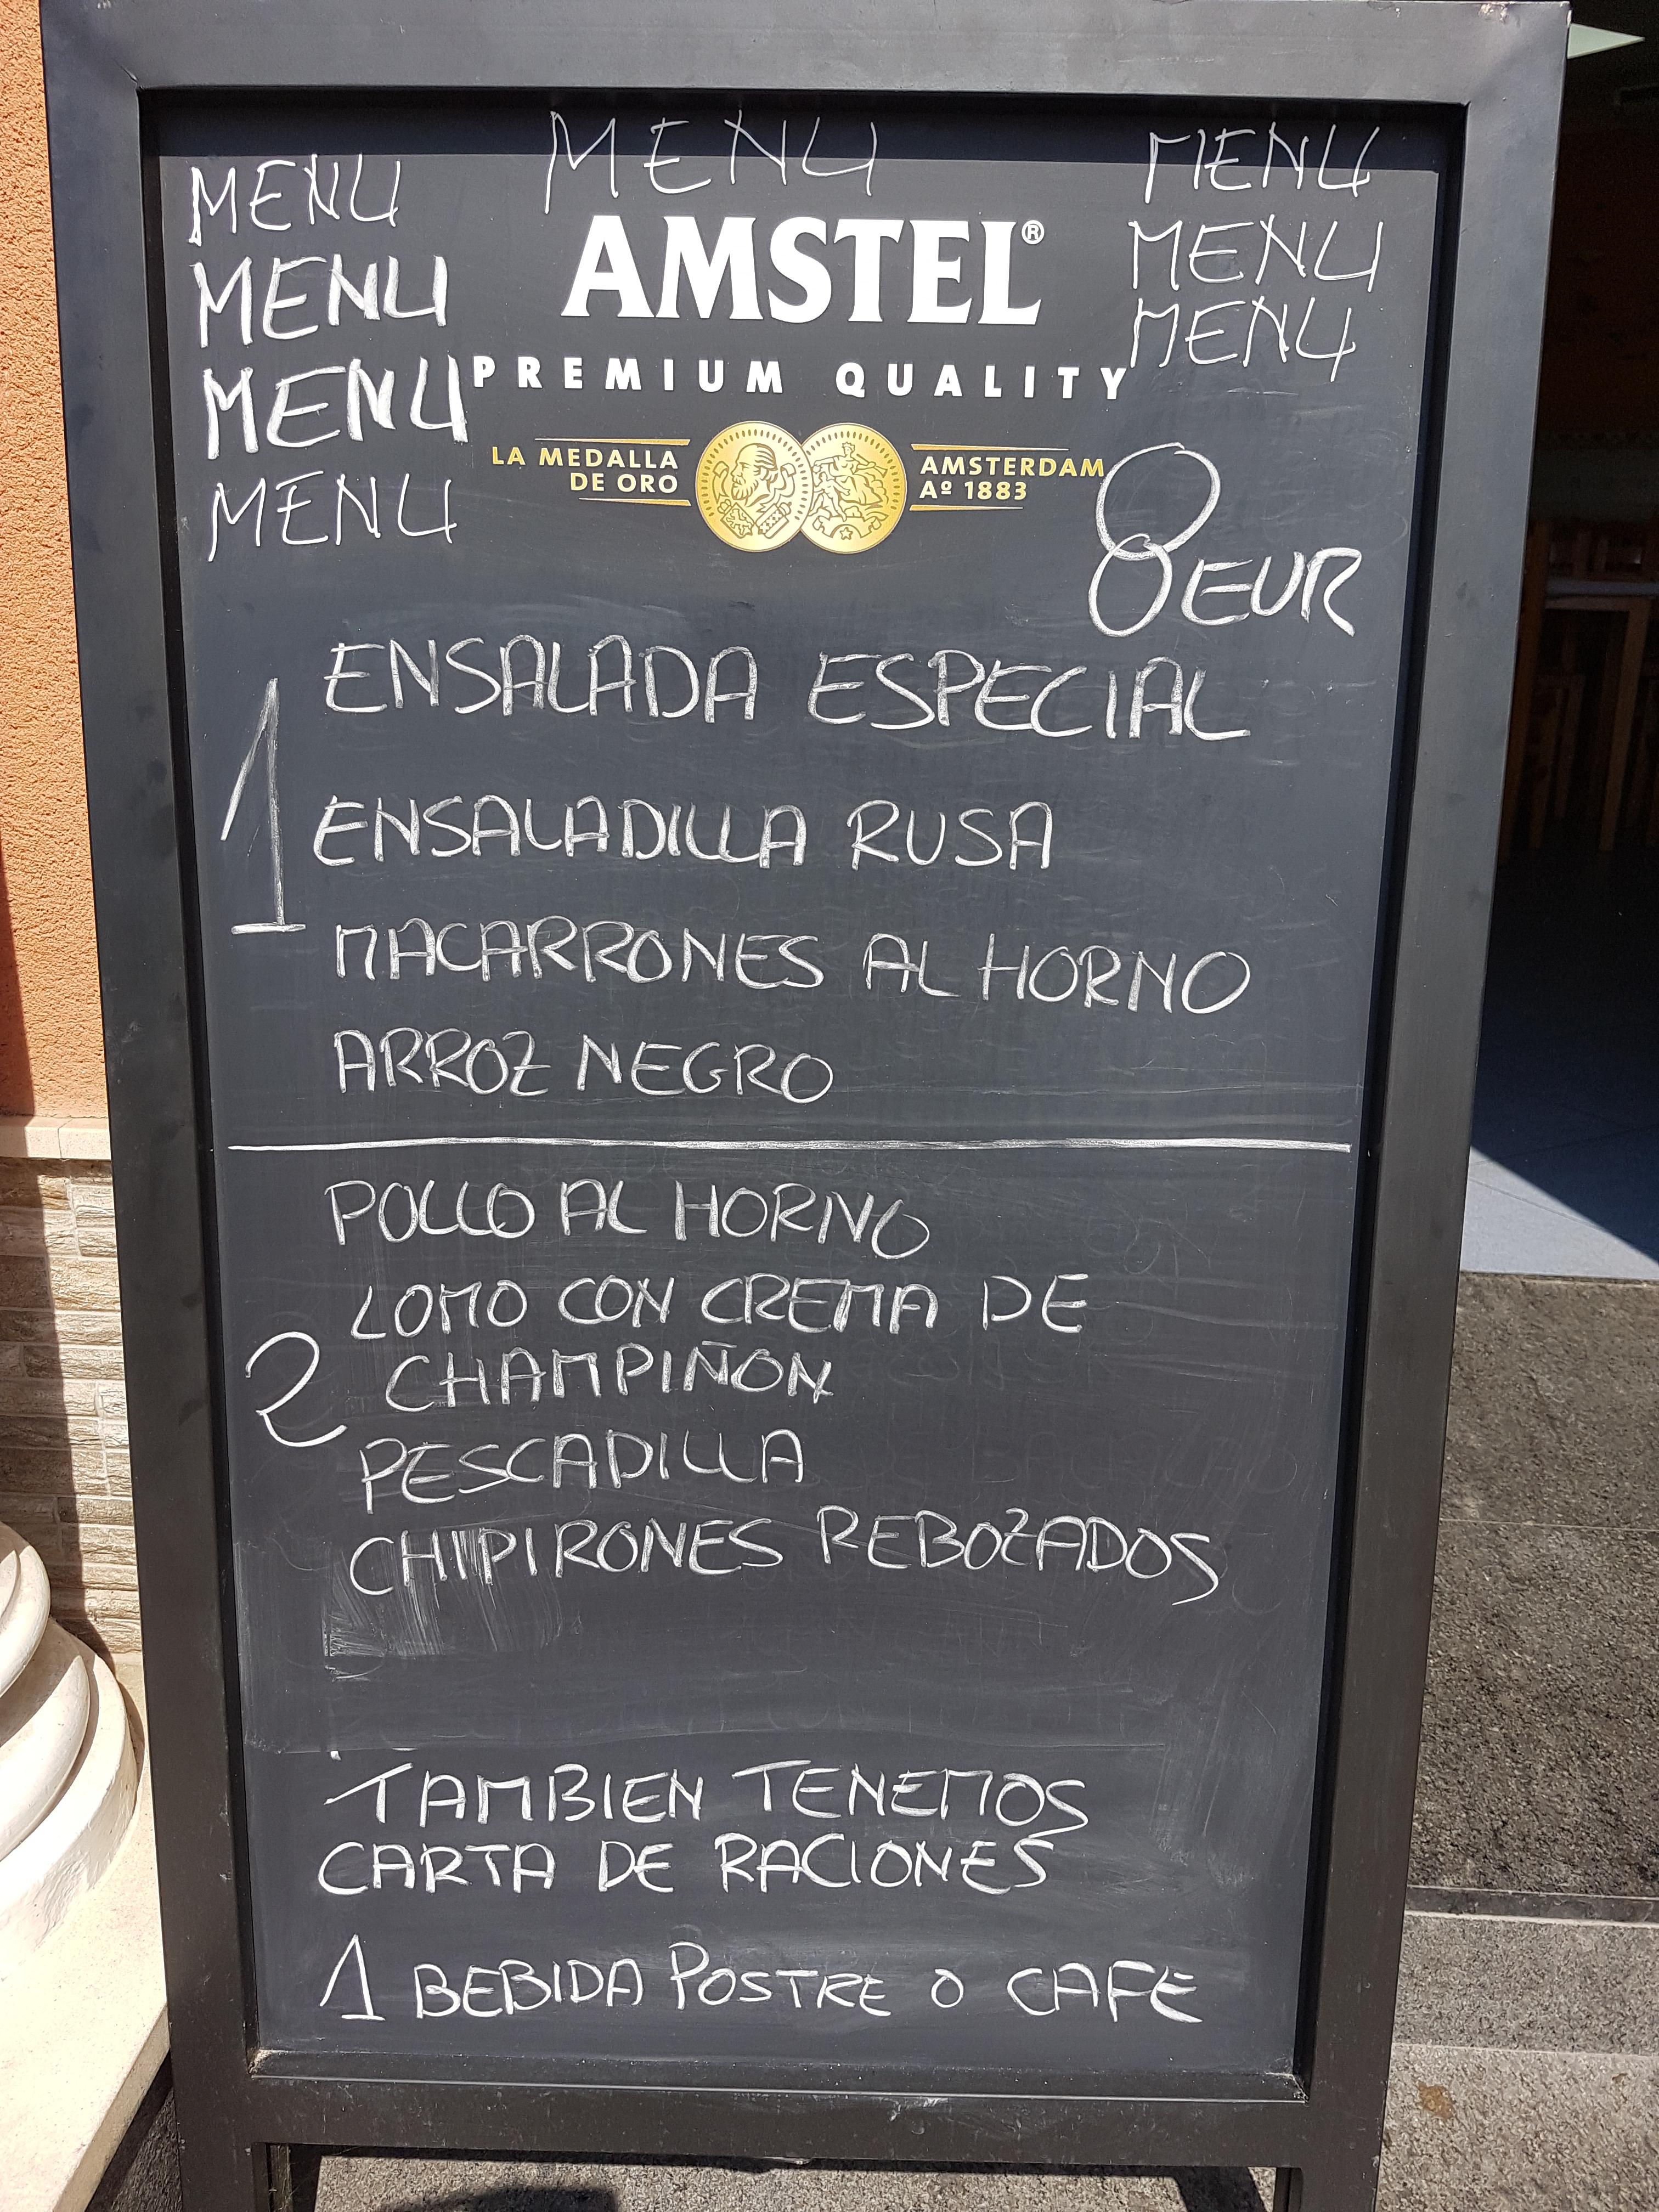 MENU
MENU
MENU
MENU
MENU
MENU
MENU
MENU
AMSTEL®
PREMIUM QUALITY
LA MEDALLA
DE ORO
AMSTERDAM
Aº 1883
8 EUR
1
ENSALADA ESPECIAL
ENSALADILLA RUSA
MACARRONES AL HORNO
ARROZ NEGRO
2
POLLO AL HORNO
LOMO CON CREMA DE
CHAMPIÑON
PESCADILLA
CHIPIRONES REBOZADOS
TAMBIEN TENEMOS
CARTA DE RACIONES
1 BEBIDA POSTRE O CAFE